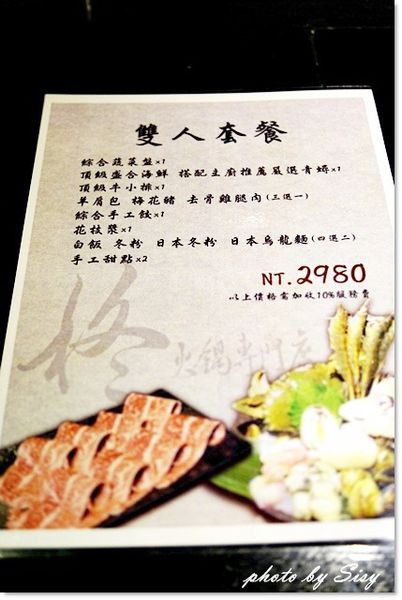 雙人套餐
綜合蔬菜盤x1
頂級盛合海鮮 搭配主廚推薦嚴選青蟳x1
頂級牛小排x1
羊肩包 梅花豬 去骨雞腿肉(三選一)
綜合手工餃x1
花枝漿x1
白飯 冬粉 日本冬粉 日本烏龍麵(四選二)
手工甜點x2
NT.2980
以上價格需加收10%服務費
柊
火鍋專門店
photo by Sisy